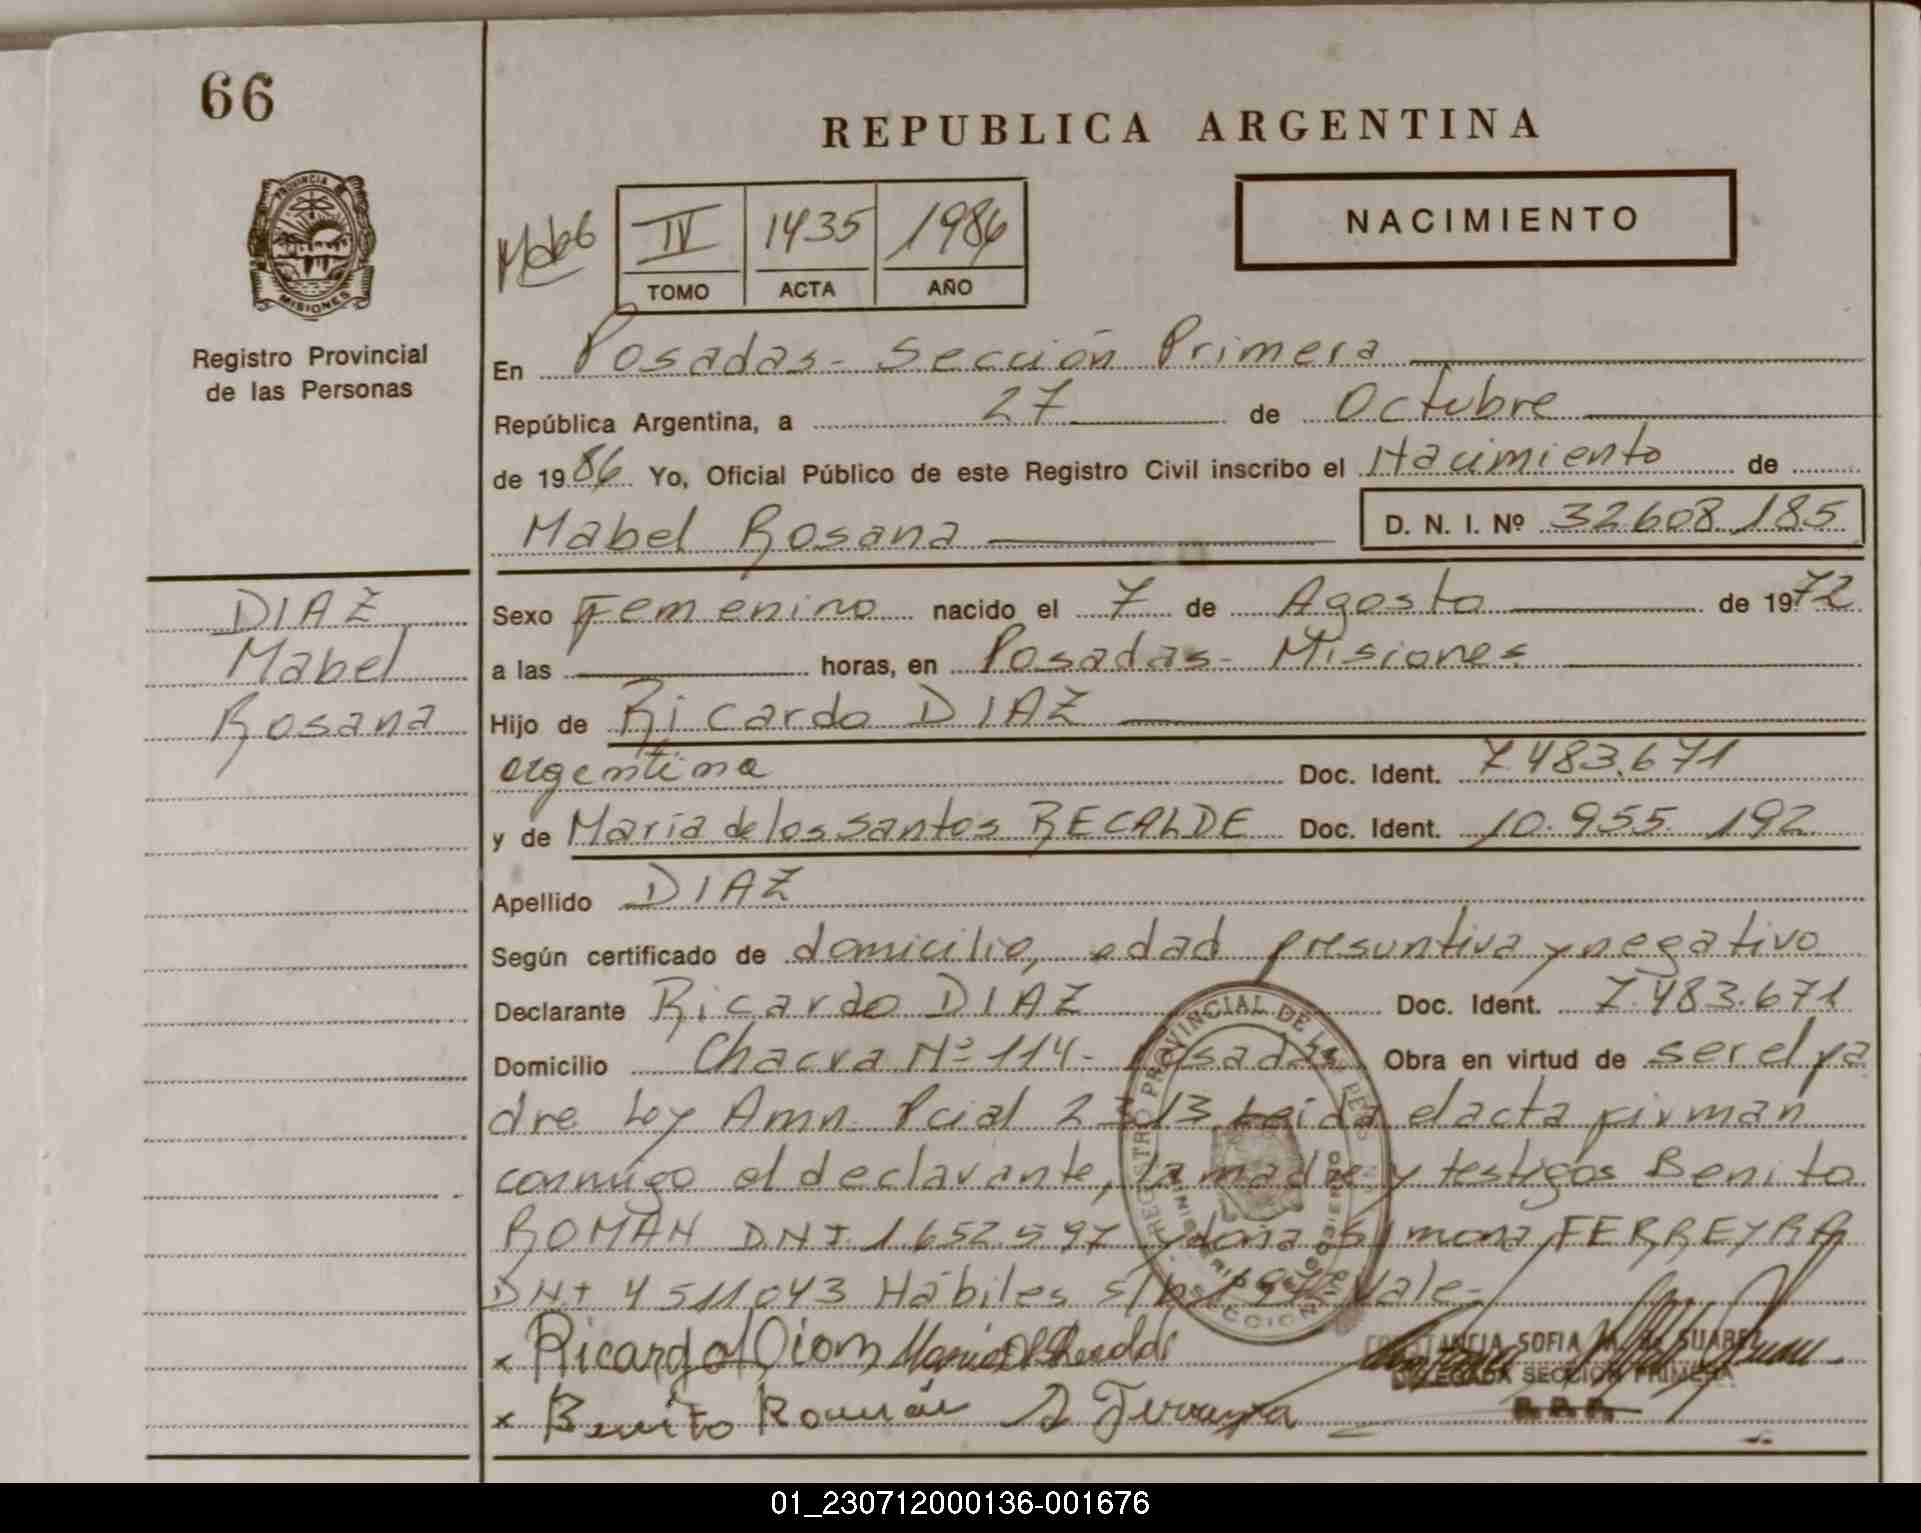 66
REPUBLICA ARGENTINA
PROVINCIA
MISIONES
Registro Provincial
de las Personas
IV 1435 1986
TOMO ACTA AÑO
NACIMIENTO
En Posadas - Sección Primera
República Argentina, a 27 de Octubre
de 1986 Yo, Oficial Público de este Registro Civil inscribo el Nacimiento de
Mabel Rosana D. N. I. Nº 32608185
DIAZ
Mabel
Rosana
Sexo Femenino nacido el 7 de Agosto de 1972
a las horas, en Posadas - Misiones
Hijo de Ricardo DIAZ
argentina Doc. Ident. 7.483.671
y de María de los Santos RECALDE Doc. Ident. 10.955.192
Apellido DIAZ
Según certificado de domicilio, edad presuntiva y negativo
Declarante Ricardo DIAZ Doc. Ident. 7.483.671
Domicilio Chacra Nº 114 - Posadas Obra en virtud de ser el pa
dre Ley Amn. Pcial 2213 Leída el acta firman
conmigo el declarante, la madre y testigos Benito
ROMAN DNI. 1.652.597 y doña Simona FERREYRA
DNI 4511043 Hábiles s/b 1972 Vale -
REGISTRO PROVINCIAL DE LAS PERSONAS
MINISTERIO DE GOBIERNO
x Ricardo Diaz
CONSTANCIA SOFIA SUAREZ
DELEGADA SECCION PRIMERA
R.P.P.
x Benito Román S Ferreyra
01_230712000136-001676